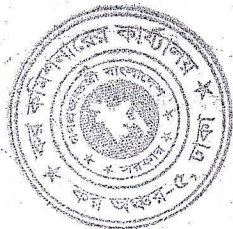 কর কমিশনারের কার্য্যালয়
গণপ্রজাতন্ত্রী বাংলাদেশ
সরকার
কর অঞ্চল-৫, ঢাকা